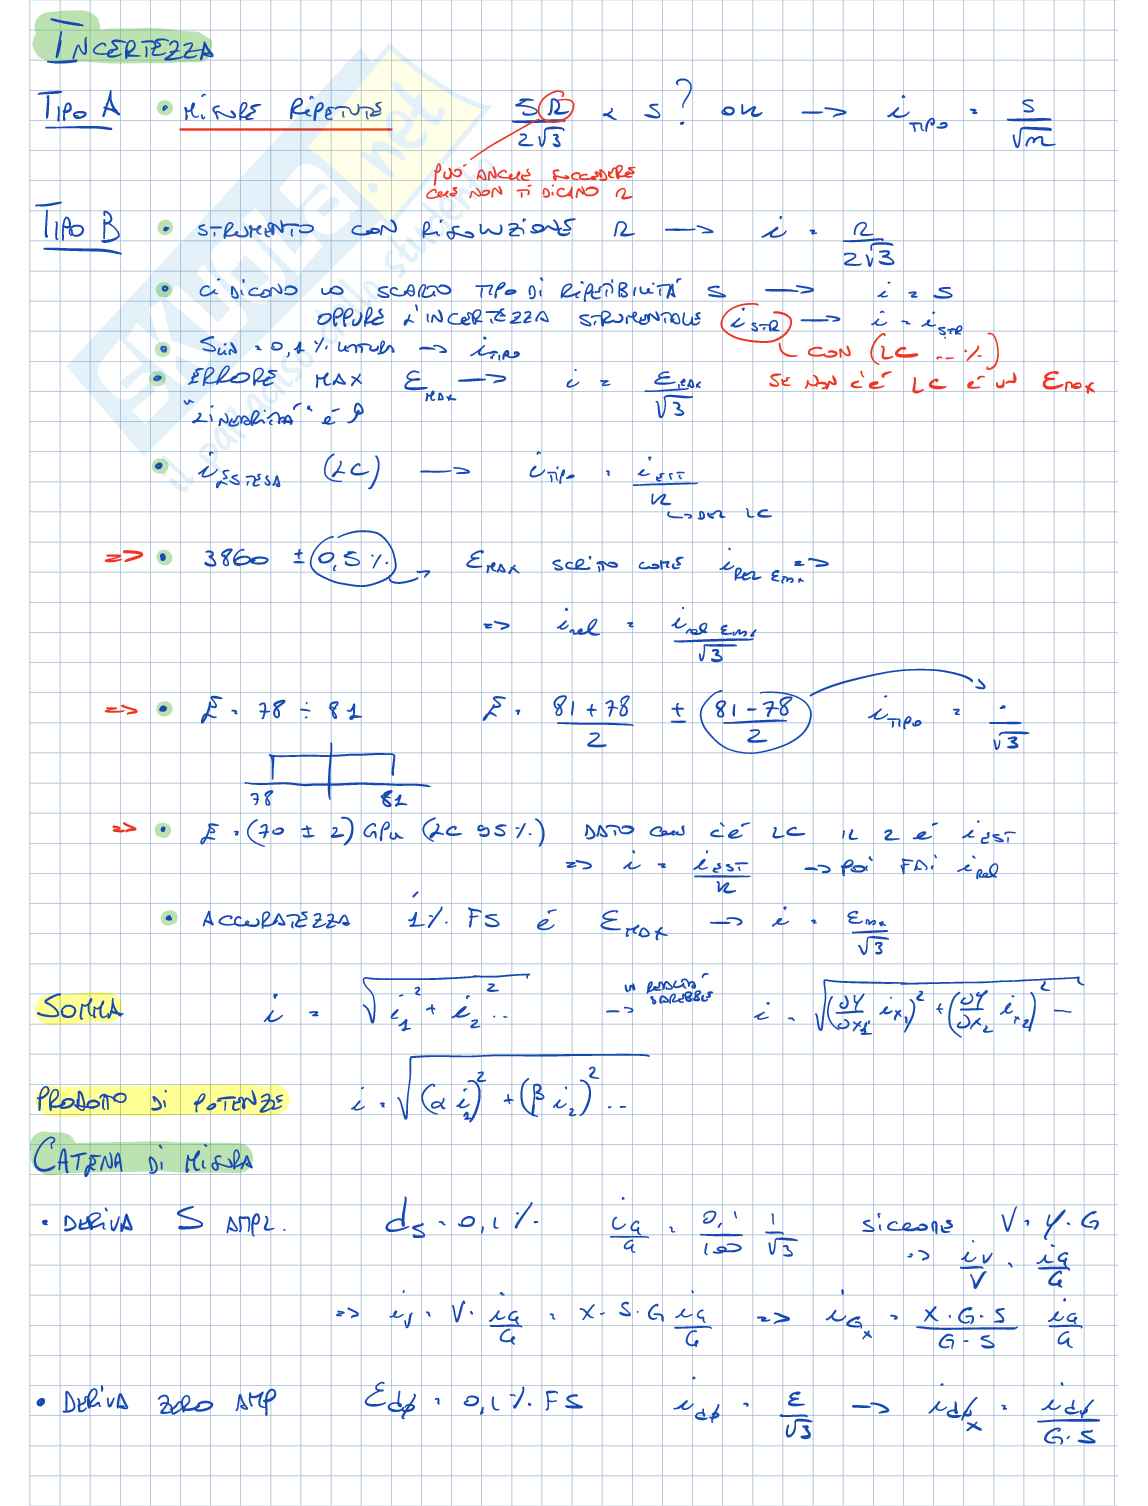 INCERTEZZA
TIPO A • MISURE RIPETUTE R/2√3 < S? OK --> i TIPO = S/√n
PUÒ ANCHE SUCCEDERE
CHE NON TI DICANO R
TIPO B • STRUMENTO CON RISOLUZIONE R --> i = R/2√3
• CI DICONO LO SCARTO TIPO DI RIPETIBILITÀ S --> i = S
OPPURE L'INCERTEZZA STRUMENTALE i STR --> i = i STR
• S LIN = 0,1% LETTURA --> i TIPO
CON (LC ..%)
• ERRORE MAX ε MAX --> i = ε MAX/√3 SE NON C'È LC È UN ε MAX
"LINEARITÀ" È
• i ESTESA (LC) --> i TIPO = i EST/K
DAL LC
=> • 3860 ± 0,5% ε MAX SCRITTO COME i REL ε MAX =>
=> i rel = i rel ε MAX/√3
=> • E = 78 ÷ 81 E = (81+78)/2 ± (81-78)/2 i TIPO = ·/√3
78 81
=> • E = (70 ± 2) GPa (LC 95%) DATO CHE C'È LC IL 2 È i EST
=> i = i EST/K --> POI FAI i Rel
• ACCURATEZZA 1% FS È ε MAX --> i = ε MAX/√3
SOMMA i = √(i₁² + i₂² ..) --> IN REALTÀ SAREBBE i = √((∂Y/∂x₁ i x₁)² + (∂Y/∂x₂ i x₂)² --
PRODOTTO DI POTENZE i = √((α i₁)² + (β i₂)² ..
CATENA DI MISURA
• DERIVA S AMPL. ds = 0,1% iG/G = 0,1/100 1/√3 SICCOME V = Y·G
=> iV/V = iG/G
=> iV = V· iG/G = X·S·G iG/G => i Gx = X·G·S/G·S iG/G
• DERIVA ZERO AMP ε dϕ = 0,1% FS i dϕ = ε/√3 --> i dϕ x = i dϕ/G·S